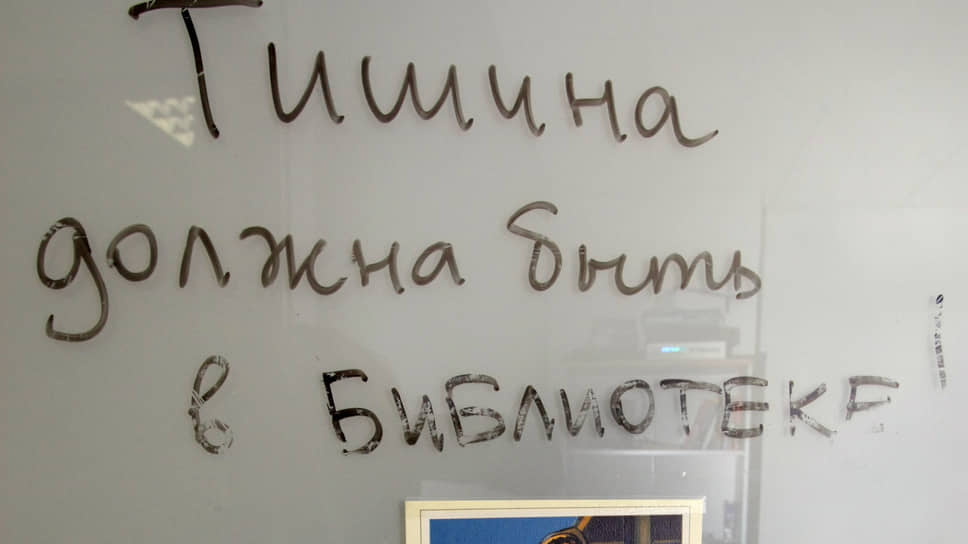 Тишина
должна быть
в БИБЛИОТЕКЕ!